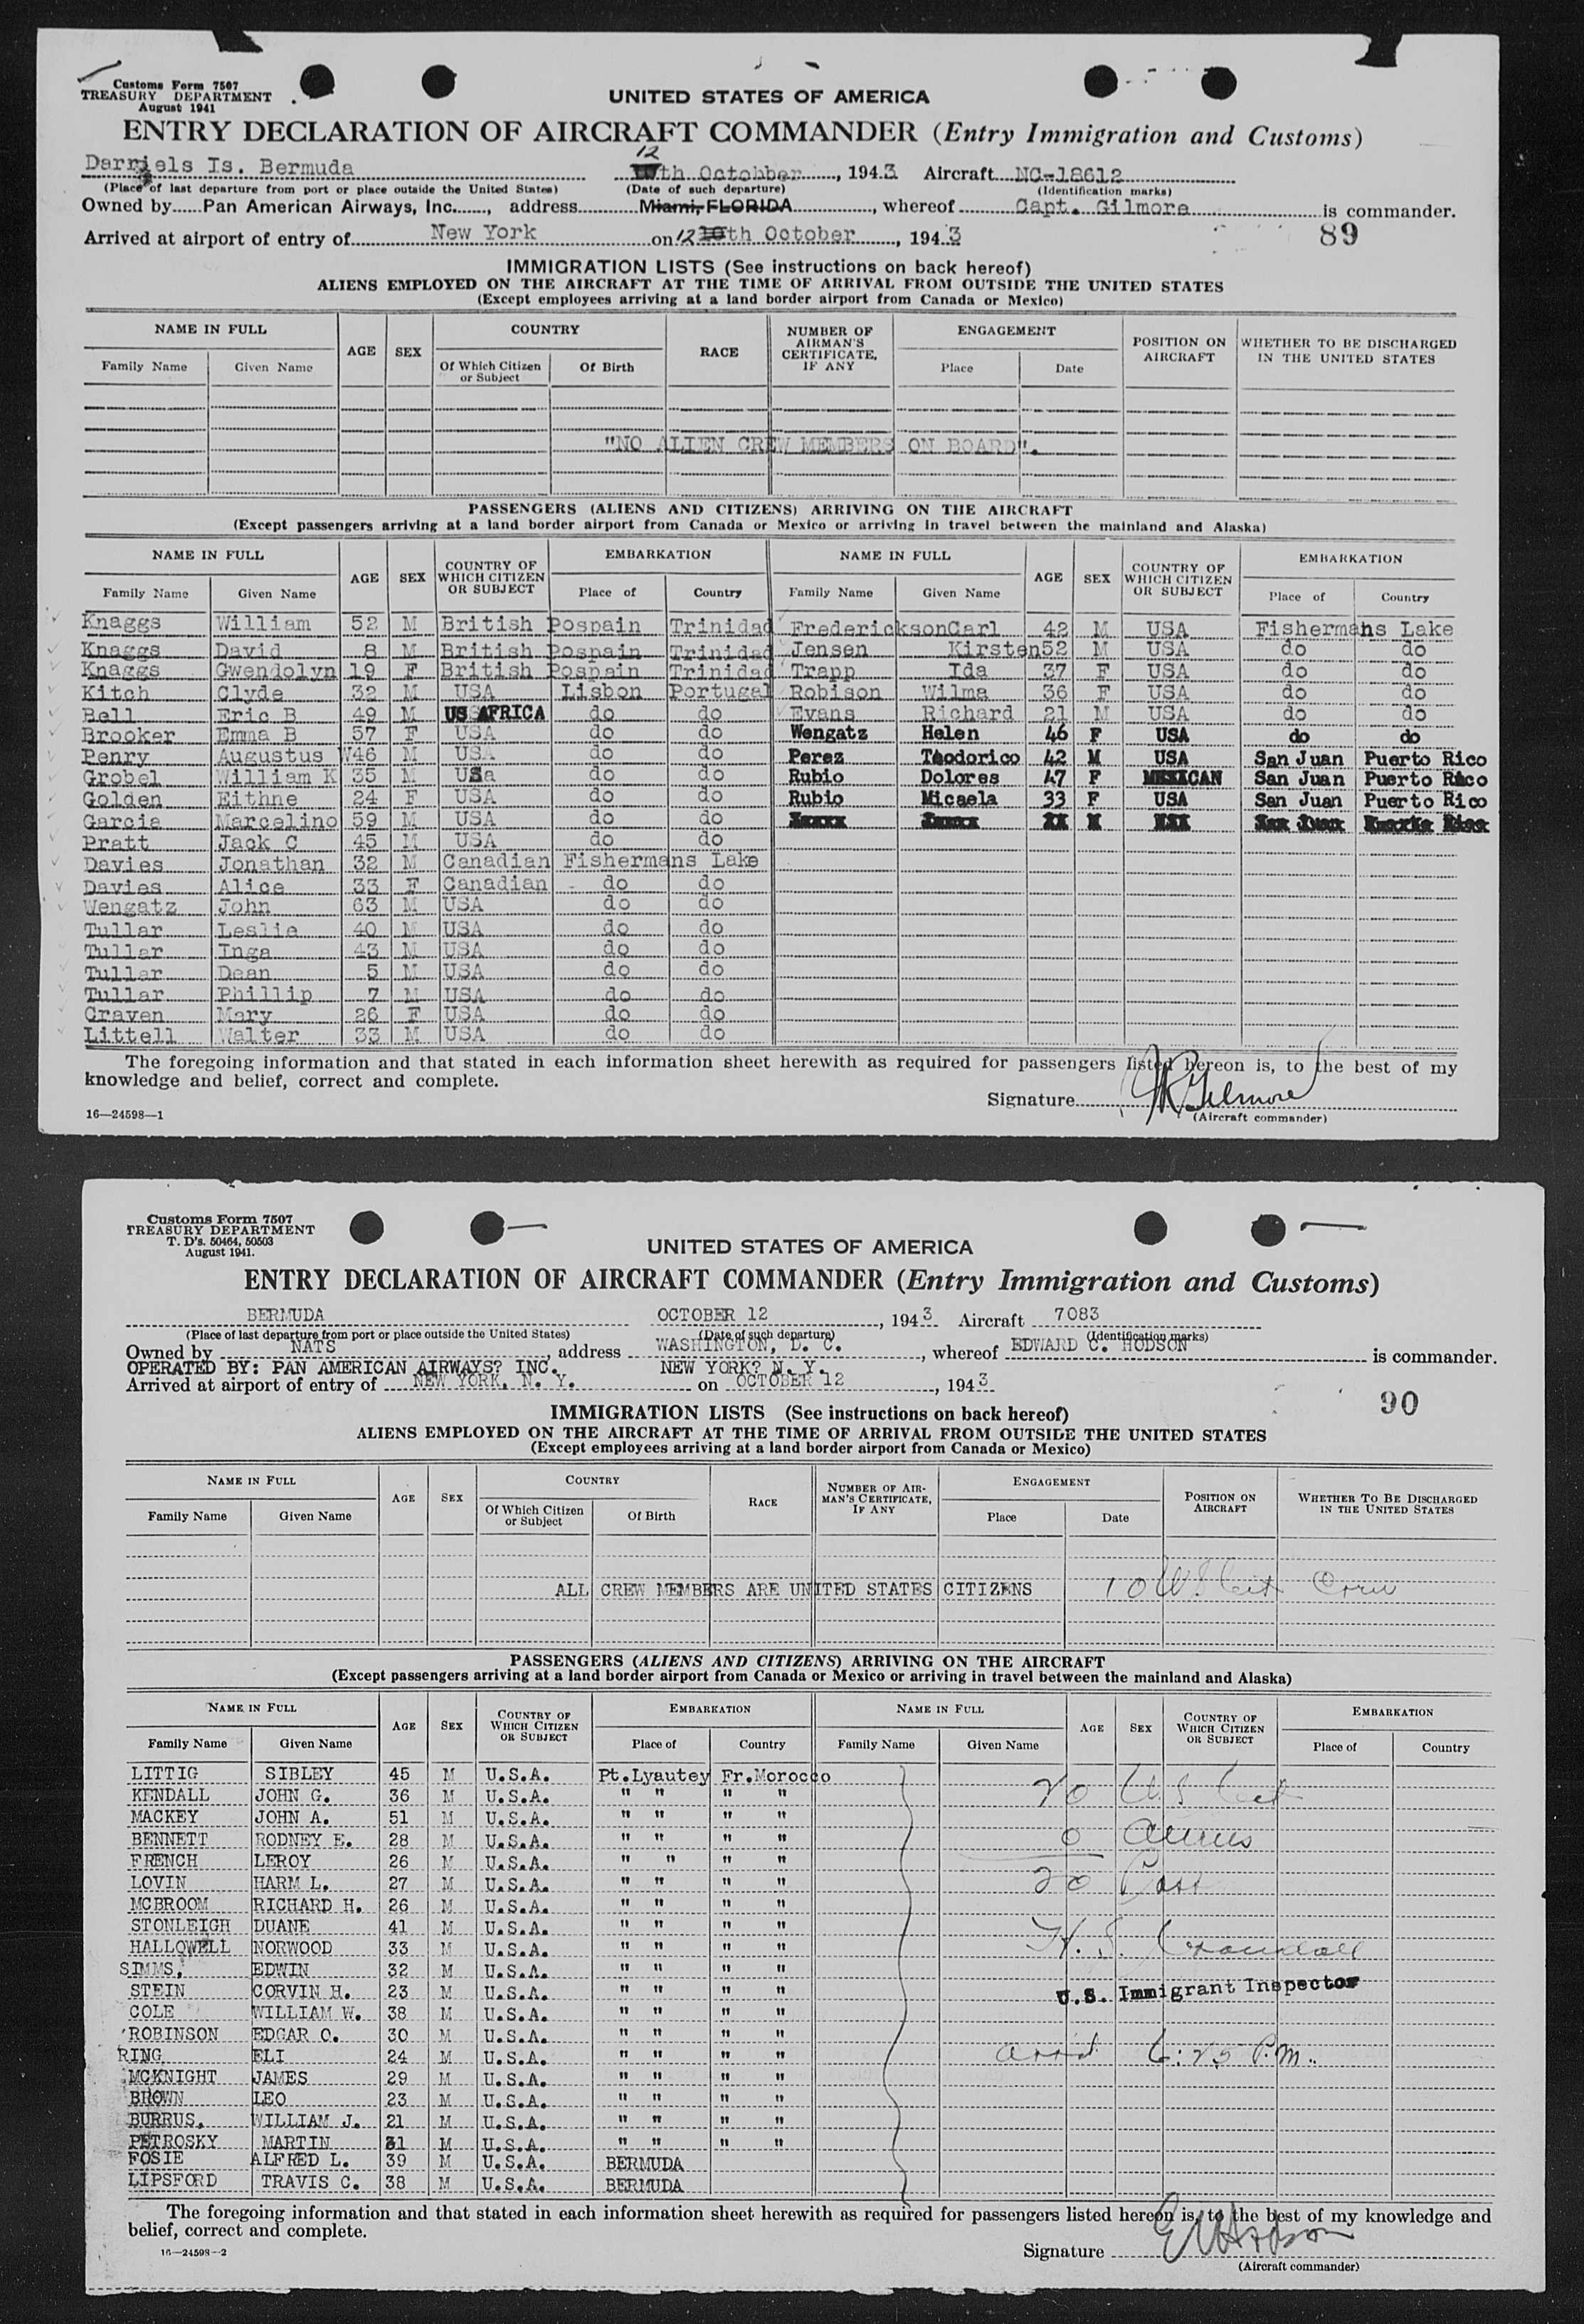 Customs Form 7507
TREASURY DEPARTMENT
August 1941
UNITED STATES OF AMERICA
ENTRY DECLARATION OF AIRCRAFT COMMANDER (Entry Immigration and Customs)
Is. Bermuda 12 th Octohber, 1943 Aircraft NC-18612
(Place of last departure from port or place outside the United States) (Date of such departure) (Identification marks)
Owned by Pan American Airways, Inc., address Miami, FLORIDA, whereof Capt. Gilmore is commander.
Arrived at airport of entry of New York on 12 th October, 1943
89
IMMIGRATION LISTS (See instructions on back hereof)
ALIENS EMPLOYED ON THE AIRCRAFT AT THE TIME OF ARRIVAL FROM OUTSIDE THE UNITED STATES
(Except employees arriving at a land border airport from Canada or Mexico)
NAME IN FULL AGE SEX COUNTRY RACE NUMBER OF AIRMAN'S CERTIFICATE, IF ANY ENGAGEMENT POSITION ON AIRCRAFT WHETHER TO BE DISCHARGED IN THE UNITED STATES
Family Name Given Name Of Which Citizen or Subject Of Birth Place Date
"NO ALIEN CREW MEMBERS ON BOARD".
PASSENGERS (ALIENS AND CITIZENS) ARRIVING ON THE AIRCRAFT
(Except passengers arriving at a land border airport from Canada or Mexico or arriving in travel between the mainland and Alaska)
NAME IN FULL AGE SEX COUNTRY OF WHICH CITIZEN OR SUBJECT EMBARKATION NAME IN FULL AGE SEX COUNTRY OF WHICH CITIZEN OR SUBJECT EMBARKATION
Family Name Given Name Place of Country Family Name Given Name Place of Country
Knaggs William 52 M British Pospain Trinidad Frederickson Carl 42 M USA Fishermans Lake
Knaggs David 8 M British Pospain Trinidad Jensen Kirsten 52 M USA do do
Knaggs Gwendolyn 19 F British Pospain Trinidad Trapp Ida 37 F USA do do
Kitch Clyde 32 M USA Lisbon Portugal Robison Wilma 36 F USA do do
Bell Eric B 49 M US AFRICA do do Evans Richard 21 M USA do do
Brooker Emma B 57 F USA do do Wengatz Helen 46 F USA do do
Penry Augustus W 46 M USA do do Perez Teodorico 42 M USA San Juan Puerto Rico
Grobel William K 35 M USa do do Rubio Dolores 47 F MEXICAN San Juan Puerto Rico
Golden Eithne 24 F USA do do Rubio Micaela 33 F USA San Juan Puerto Rico
Garcia Marcelino 59 M USA do do
Pratt Jack C 45 M USA do do
Davies Jonathan 32 M Canadian Fishermans Lake
Davies Alice 33 F Canadian do do
Wengatz John 63 M USA do do
Tullar Leslie 40 M USA do do
Tullar Inga 43 M USA do do
Tullar Dean 5 M USA do do
Tullar Phillip 7 M USA do do
Craven Mary 26 F USA do do
Littell Walter 33 M USA do do
The foregoing information and that stated in each information sheet herewith as required for passengers listed hereon is, to the best of my
knowledge and belief, correct and complete.
Signature Gilmore
(Aircraft commander)
16—24598—1
Customs Form 7507
TREASURY DEPARTMENT
T. D's. 50464, 50503
August 1941.
UNITED STATES OF AMERICA
ENTRY DECLARATION OF AIRCRAFT COMMANDER (Entry Immigration and Customs)
BERMUDA OCTOBER 12, 1943 Aircraft 7083
(Place of last departure from port or place outside the United States) (Date of such departure) (Identification marks)
Owned by NATS, address WASHINGTON, D. C., whereof EDWARD C. HODSON is commander.
OPERATED BY: PAN AMERICAN AIRWAYS? INC. NEW YORK? N. Y.
Arrived at airport of entry of NEW YORK, N. Y. on OCTOBER 12, 1943
90
IMMIGRATION LISTS (See instructions on back hereof)
ALIENS EMPLOYED ON THE AIRCRAFT AT THE TIME OF ARRIVAL FROM OUTSIDE THE UNITED STATES
(Except employees arriving at a land border airport from Canada or Mexico)
NAME IN FULL AGE SEX COUNTRY RACE NUMBER OF AIRMAN'S CERTIFICATE, IF ANY ENGAGEMENT POSITION ON AIRCRAFT WHETHER TO BE DISCHARGED IN THE UNITED STATES
Family Name Given Name Of Which Citizen or Subject Of Birth Place Date
ALL CREW MEMBERS ARE UNITED STATES CITIZENS 10 US Cit Crew
PASSENGERS (ALIENS AND CITIZENS) ARRIVING ON THE AIRCRAFT
(Except passengers arriving at a land border airport from Canada or Mexico or arriving in travel between the mainland and Alaska)
NAME IN FULL AGE SEX COUNTRY OF WHICH CITIZEN OR SUBJECT EMBARKATION NAME IN FULL AGE SEX COUNTRY OF WHICH CITIZEN OR SUBJECT EMBARKATION
Family Name Given Name Place of Country Family Name Given Name Place of Country
LITTIG SIBLEY 45 M U.S.A. Pt.Lyautey Fr.Morocco
KENDALL JOHN G. 36 M U.S.A. " " " " 20 US Cit
MACKEY JOHN A. 51 M U.S.A. " " " "
BENNETT RODNEY E. 28 M U.S.A. " " " " 0 Aliens
FRENCH LEROY 26 M U.S.A. " " " "
LOVIN HARM L. 27 M U.S.A. " " " " 20 Pass
MCBROOM RICHARD H. 26 M U.S.A. " " " "
STONLEIGH DUANE 41 M U.S.A. " " " "
HALLOWELL NORWOOD 33 M U.S.A. " " " " H. S. Crandall
SIMMS, EDWIN 32 M U.S.A. " " " "
STEIN CORVIN H. 23 M U.S.A. " " " " U.S. Immigrant Inspector
COLE WILLIAM W. 38 M U.S.A. " " " "
ROBINSON EDGAR O. 30 M U.S.A. " " " "
RING ELI 24 M U.S.A. " " " " arrd 6:25 P.M.
MCKNIGHT JAMES 29 M U.S.A. " " " "
BROWN LEO 23 M U.S.A. " " " "
BURRUS, WILLIAM J. 21 M U.S.A. " " " "
PETROSKY MARTIN 31 M U.S.A. " " " "
FOSIE ALFRED L. 39 M U.S.A. BERMUDA
LIPSFORD TRAVIS C. 38 M U.S.A. BERMUDA
The foregoing information and that stated in each information sheet herewith as required for passengers listed hereon is, to the best of my knowledge and
belief, correct and complete.
Signature EC Hodson
(Aircraft commander)
16—24598—2